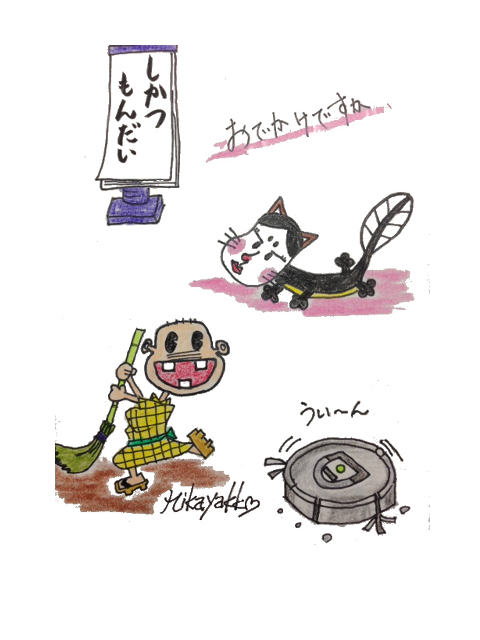 しかつ
もんだい
おでかけですか
うい〜ん
Mikayakko